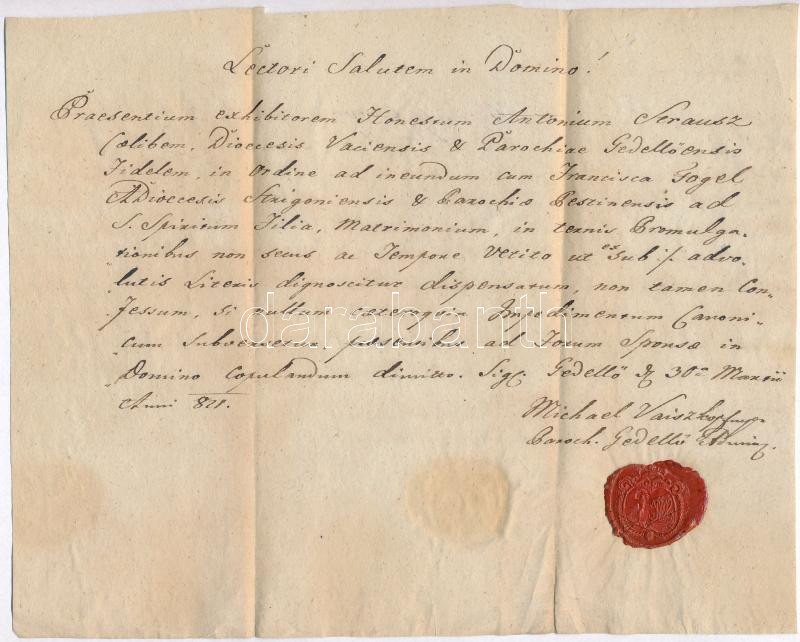 Lectori Salutem in Domino!
Praesentium exhibitorem Honestum Antonium Strausz
Cælibem, Dioecesis Vaciensis & Parochiae Gedellöensis
Fidelem, in Ordine ad ineundum cum Francisca Fogel
ADioecesis Strigoniensis & Parochia Pestinensis ad
S. Spiritum Filia, Matrimonium, in ternis Promulga-
tionibus non secus ac Tempore Vetito ut ex Sub ·/. advo-
lutis Literis dignoscitur dispensatum, non tamen Con-
fessum, si nullum cæteroquin Impedimentum Canoni-
cum Subversetur præsentibus ad Forum Sponsæ in
Domino copulandum dimitto. Sig. Gedellö 30a Martii
Anni 821.
Michael Vaiszkopf mpr
Paroch. Gedellö
darabanth